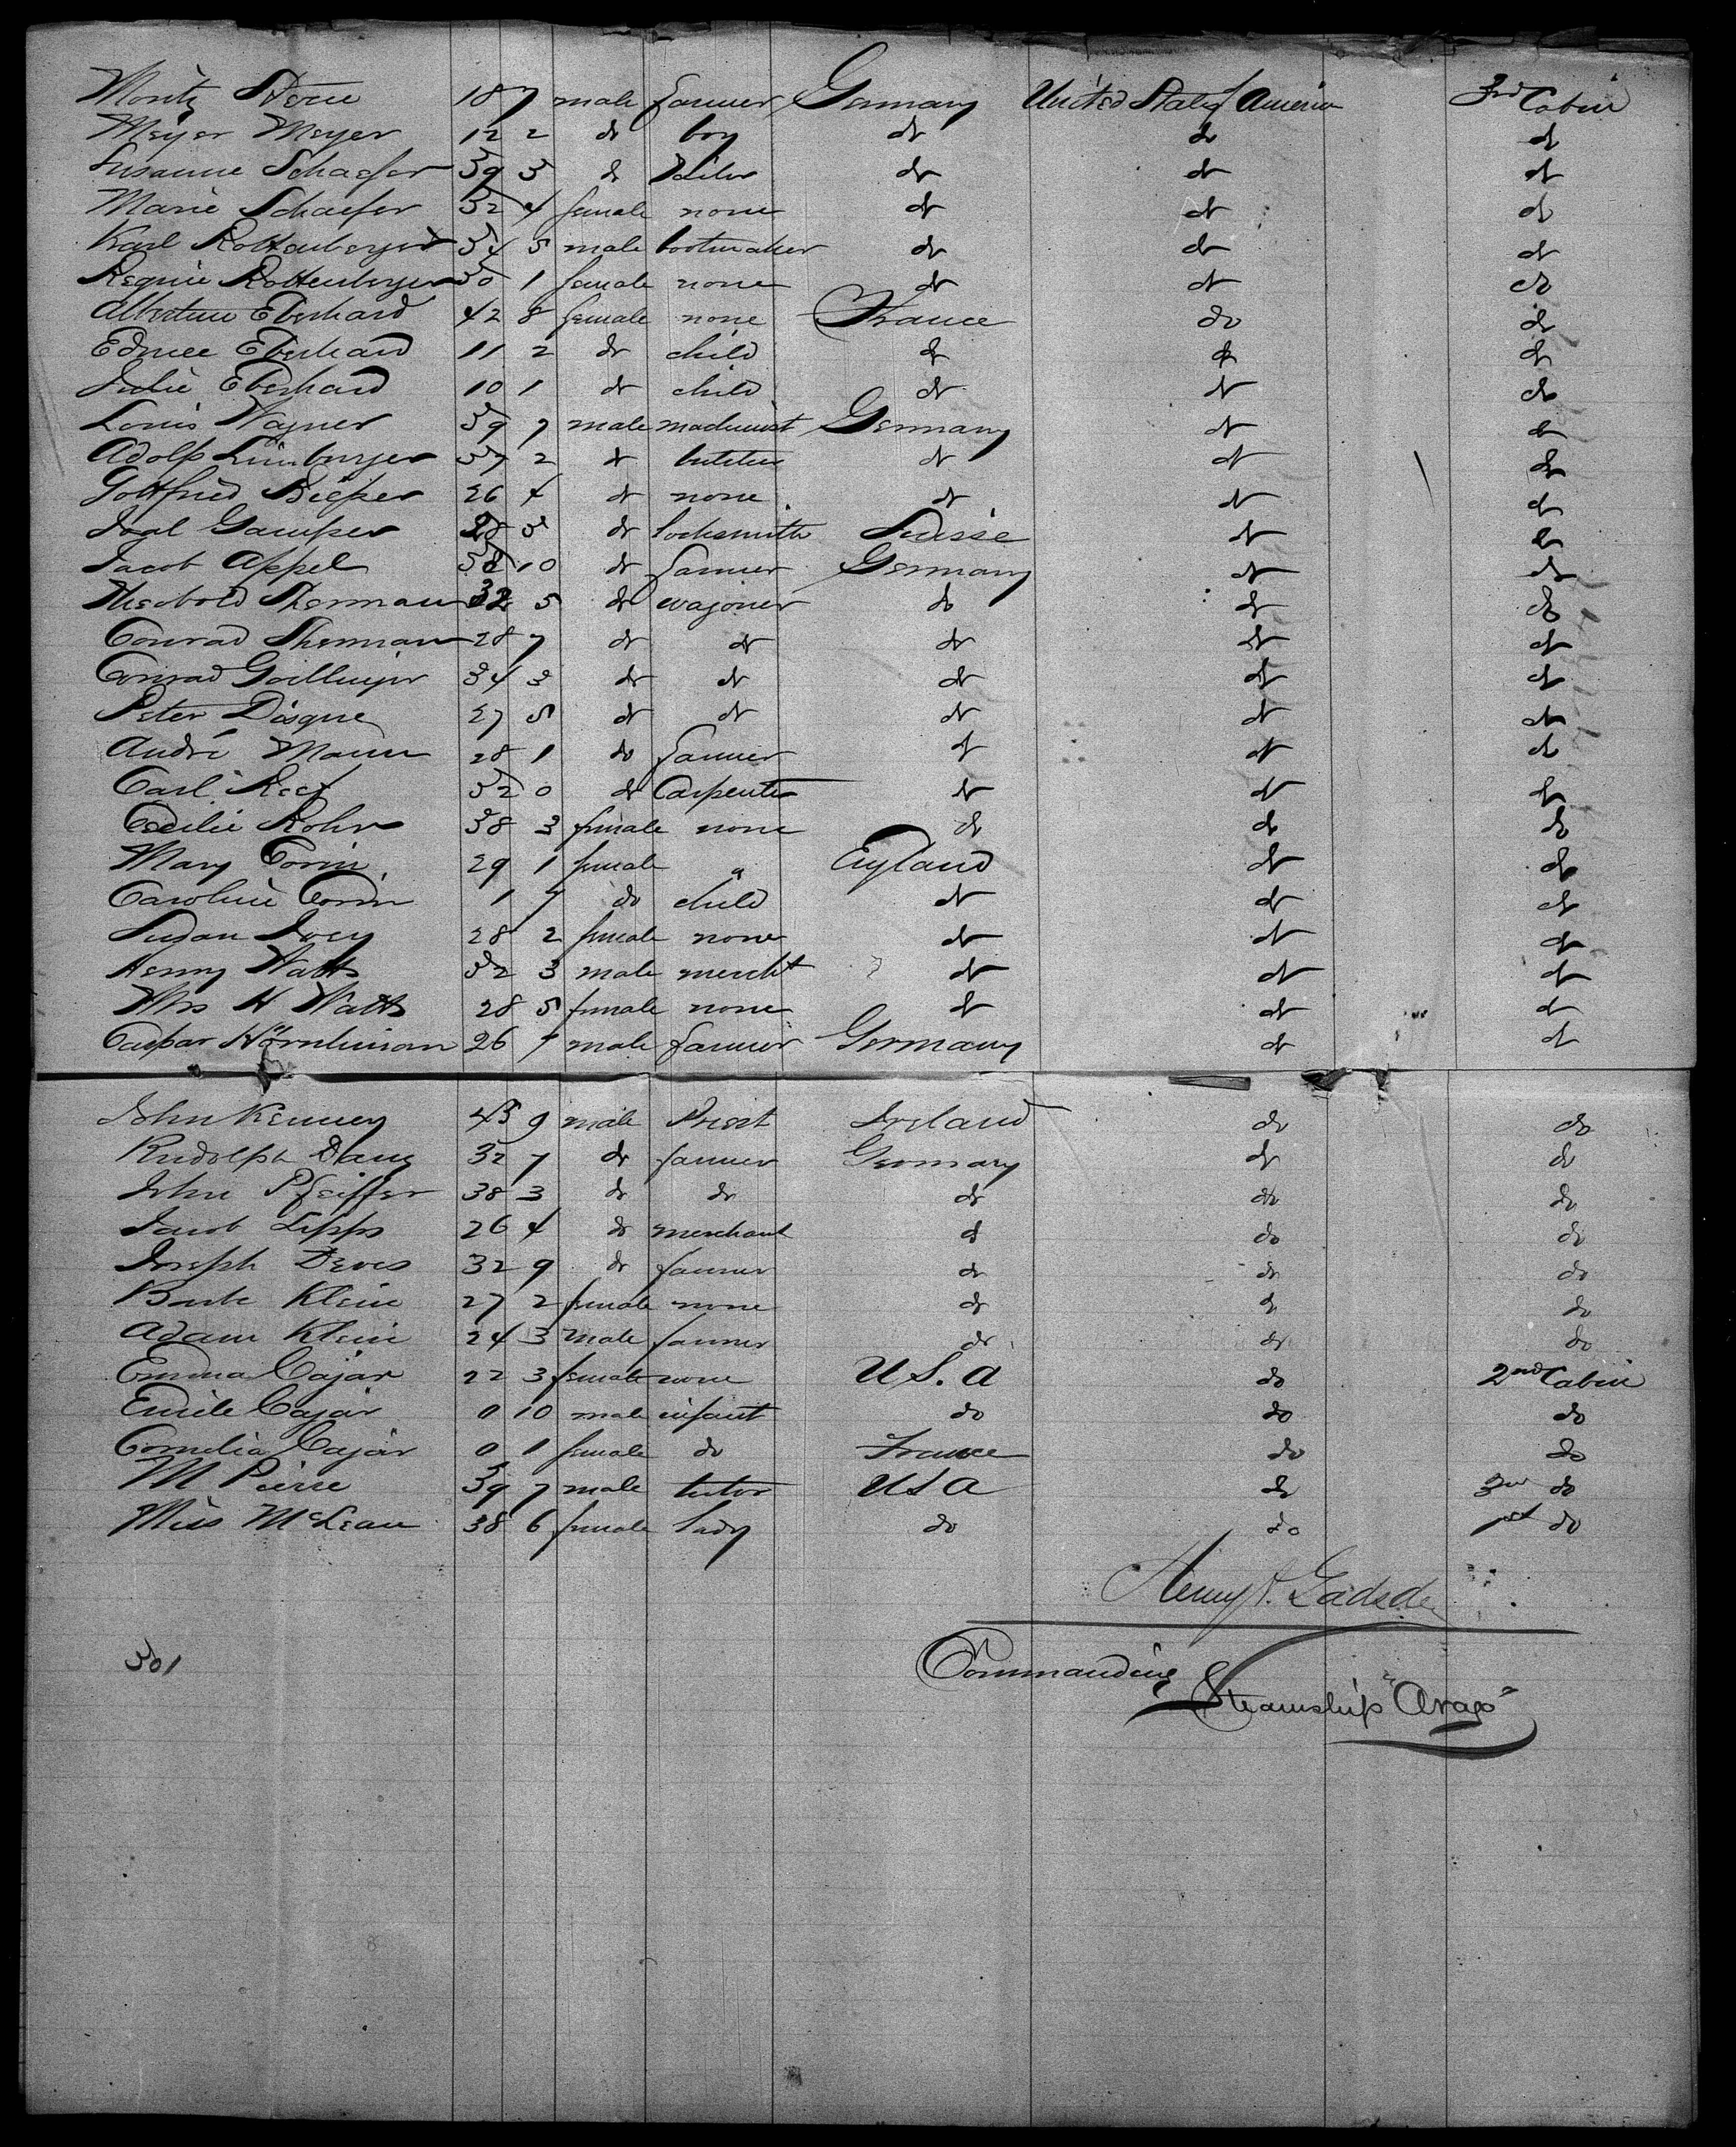 Moritz Stern 18 7 male farmer Germany United States of America 3rd Cabin
Meyer Meyer 12 2 do boy do do do
Susanne Schaefer 39 3 do do do do
Marie Schaefer 32 4 female none do do do
Karl Rottenberger 34 5 male bootmaker do do do
Regnie Rottenberger 30 1 female none do do do
Albertine Eberhard 42 8 female none France do do
Edmee Eberhard 11 2 do child do do do
Julie Eberhard 10 1 do child do do do
Louis Wagner 39 7 male machinist Germany do do
Adolf Limburger 37 2 do butcher do do do
Gottfried 26 4 do none do do do
Gamper 28 3 do locksmith Suisse do do
Jacob Appel 38 10 do farmer Germany do do
Theobold Sherman 32 5 do wagoner do do do
Conrad Sherman 28 7 do do do do do
Conrad 34 3 do do do do do
Peter Disque 27 5 do do do do do
André Mann 28 1 do farmer do do do
Carl 32 0 do Carpenter do do do
Cecilie Rohr 38 3 female none do do do
Mary Corin 29 1 female " England do do
Caroline Corin 1 7 do child do do do
Susan 28 2 female none do do do
Henry Watts 32 3 male mercht do do do
Mrs H Watts 28 5 female none do do do
Caspar 26 7 male farmer Germany do do
John Kenney 45 9 male Priest Ireland do do
Rudolph 32 7 do farmer Germany do do
John Pfeiffer 38 3 do do do do do
Jacob Lipps 26 4 do merchant do do do
Joseph Deves 32 9 do farmer do do do
Barb Klein 27 2 female none do do do
Adam Klein 24 3 male farmer do do do
Emma Cajar 22 3 female none U.S.A do 2nd Cabin
Emile Cajar 0 10 male infant do do do
Cornelia Cajar 0 1 female do France do do
M Pierre 39 7 male tutor USA do 3rd do
Miss McLean 38 6 female lady do do 1st do
Henry A. Gadsden
301
Commanding
Steamship "Arago"